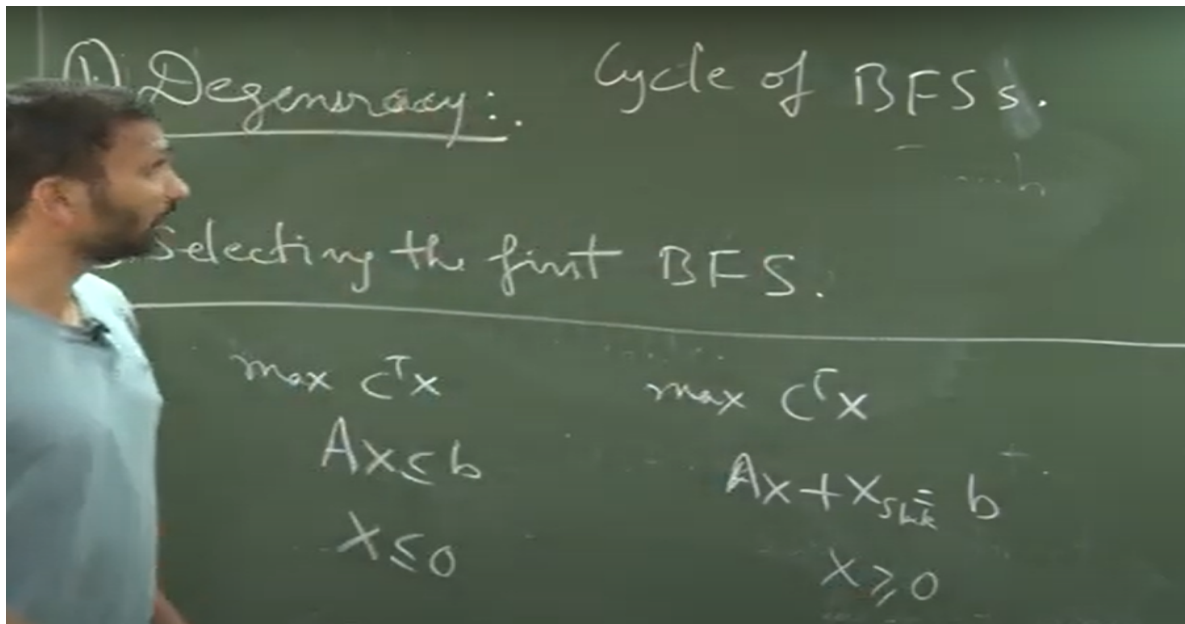 1. Degeneracy:. Cycle of BFSs.
Selecting the first BFS.
max CᵀX
AX ≤ b
X ≤ 0
max CᵀX
AX + X_slk = b
X ≥ 0